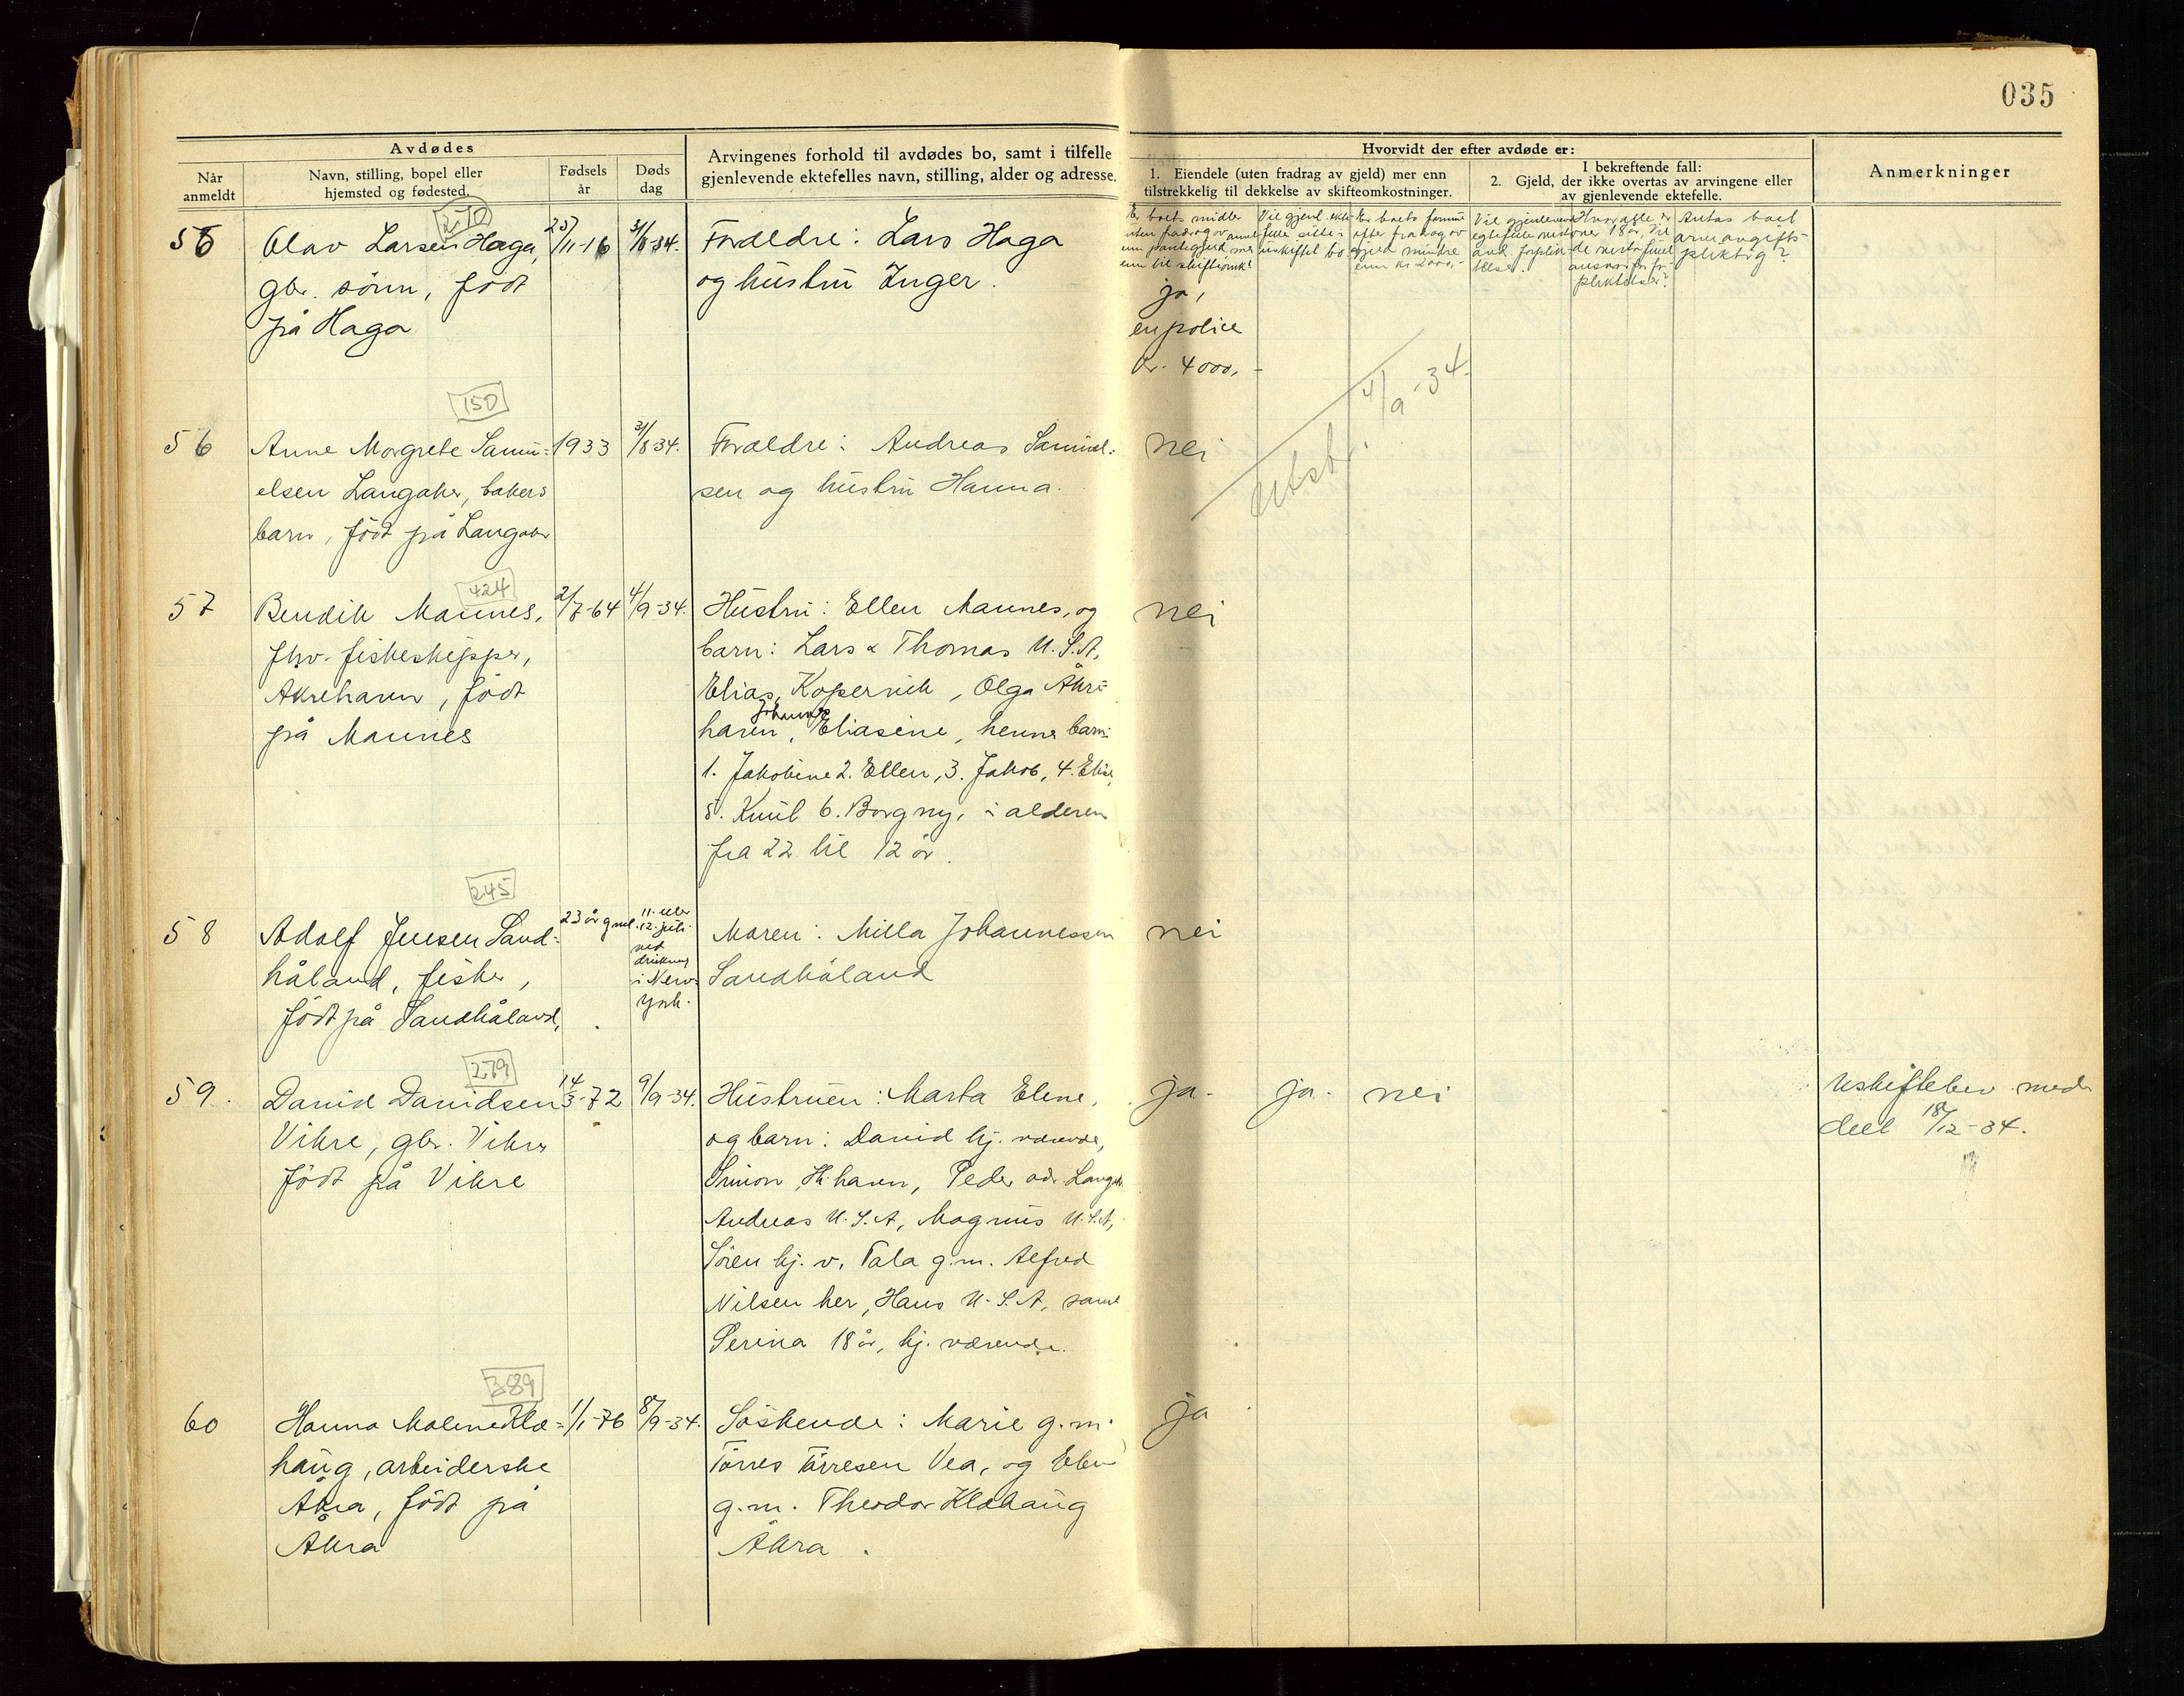 035
Avdødes
Når
anmeldt
Navn, stilling, bopel eller
hjemsted og fødested.
Fødsels
år
Døds
dag
Arvingenes forhold til avdødes bo, samt i tilfelle
gjenlevende ektefelles navn, stilling, alder og adresse.
Hvorvidt der efter avdøde er:
1. Eiendele (uten fradrag av gjeld) mer enn
tilstrekkelig til dekkelse av skifteomkostninger.
I bekreftende fall:
2. Gjeld, der ikke overtas av arvingene eller
av gjenlevende ektefelle.
Anmerkninger
Er boets midler
uten fradrag av
enn pantegjeld mer
enn til skifteomk?
Vil gjenl. ekte-
felle sitte i
uskiftet bo
Er boets formue
efter fradrag av
gjeld mindre
enn kr 2000,-
Vil gjenlevende
egtefelle
Antas boet
arveavgifts-
pliktig?
270
55 Olav Larsen Haga, 25/11-16 31/8-34. Foreldre: Lars Haga
gbr. sønn, født og hustru Inger. ja,
på Haga en police
kr. 4000,-
150
Utskr. 4/9-34.
56 Anne Margrete Samu- 1933 31/8-34. Foreldre: Andreas Samuel- nei
elsen Langaker, bakers sen og hustru Hanna.
barn, født på Langaker
424
57 Bendik Mannes, 2/7-64 4/9-34. Hustru: Ellen Mannes, og nei
fhv. fiskeskipper, barn: Lars & Thomas U.S.A,
Åkrehavn, født Elias, Kopervik, Olga Åkre-
på Mannes havn, Johanne Eliasine, hennes barn:
1. Jakobine 2. Ellen, 3. Jakob, 4. Elise,
5. Knut 6. Borgny, i alderen
fra 22 til 12 år.
245
58 Adolf Jensen Sand- 23 år gml. 11. eller
12. juli
ved
drukning
i New
York.
Moren: Milla Johannessen nei
håland, fisker, Sandhåland
født på Sandhåland,
279
59. David Davidsen 14/3-72 9/9-34. Hustruen: Marta Elene, ja- ja- nei Uskiftebev. med-
Vikre, gbr. Vikre og barn: David hj. værende, delt 18/12-34.
født på Vikre Simon, H.havn, Peder adr. Langåk
Andreas U.S.A, Magnus U.S.A,
Søren hj. v. Tala g.m. Alfred
Nilsen her, Hans U.S.A, samt
Serina 18 år, hj. værende.
389
60 Hanna Malene Kla- 1/1-76 8/9-34. Søskende: Marie g.m. ja
haug, arbeiderske Tørres Tørresen Vea, og Elen
Åkra, født på g.m. Theodor Klahaug
Åkra Åkra.